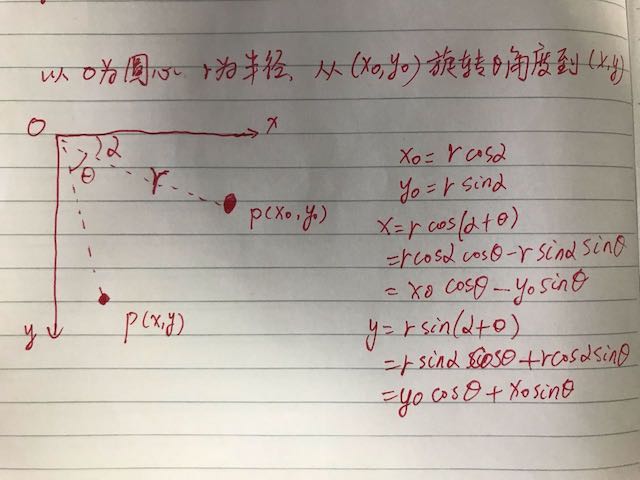 以O为圆心 r为半径、从(x0,y0)旋转θ角度到(x,y)
O
x
α
θ
r
p(x0,y0)
p(x,y)
y
x0=rcosα
y0=rsinα
x=rcos(α+θ)
=rcosα cosθ-rsinα sinθ
=x0 cosθ-y0sinθ
y=rsin(α+θ)
=rsinα cosθ+rcosαsinθ
=y0cosθ+x0sinθ